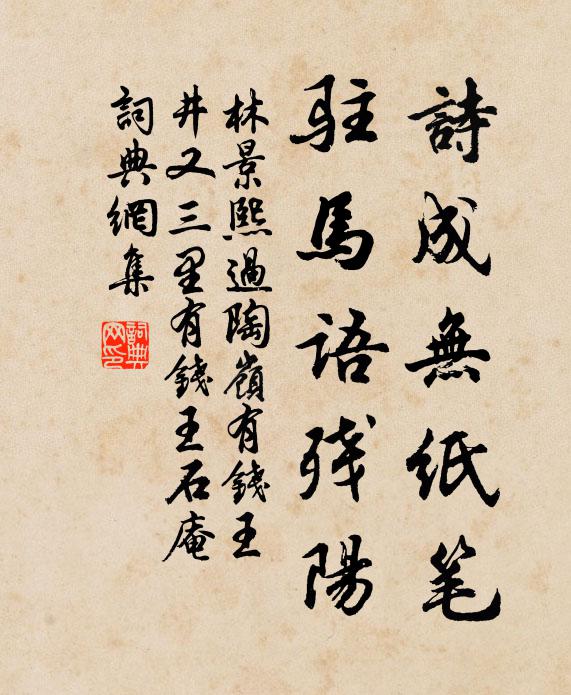 詩成無紙笔
駐馬語残陽
林景熙過陶嶺有錢王
井又三里有錢王石庵
詞典網集
詞典
网印